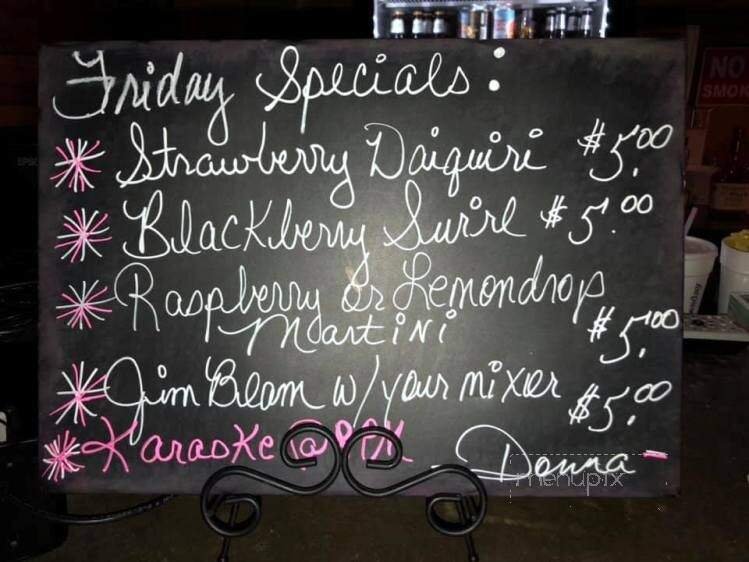 Friday Specials:
Strawberry Daiquiri $5.00
Blackberry Swirl $5.00
Raspberry or Lemondrop
Martini $5.00
Jim Beam w/your mixer $5.00
Karaoke @ PM
Donna
NO
SMOK
menupix